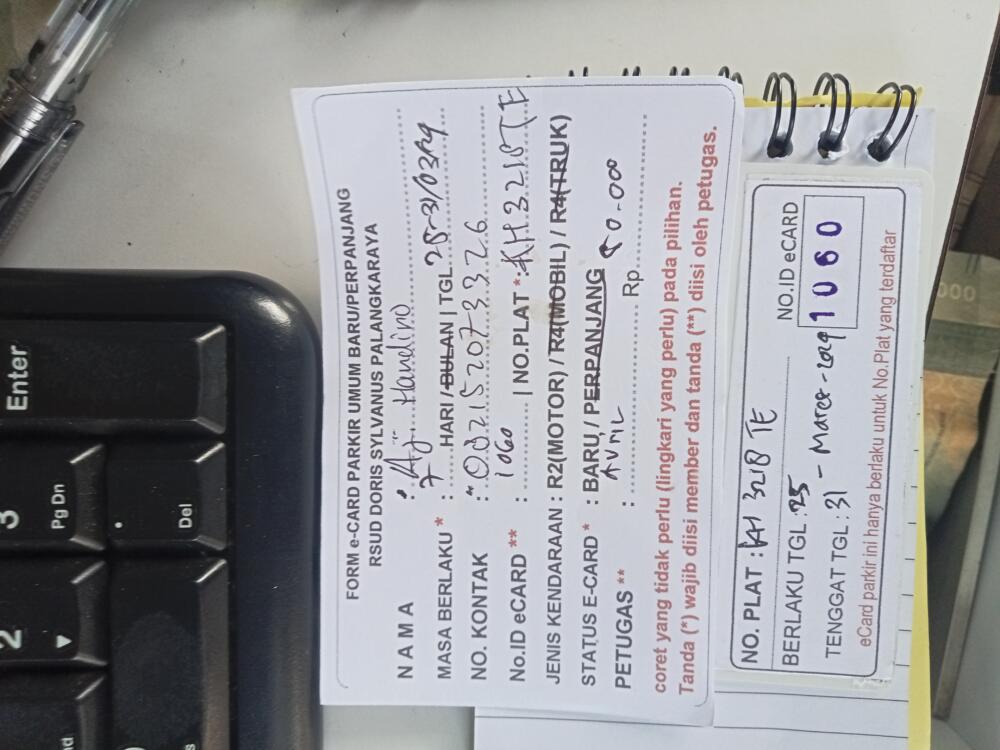 FORM e-CARD PARKIR UMUM BARU/PERPANJANG
RSUD DORIS SYLVANUS PALANGKARAYA
N A M A : Aj. Handino
MASA BERLAKU * : 7 HARI / BULAN | TGL. 25-31/03/19
NO. KONTAK : 082152073326
No.ID eCARD ** : 1060 | NO.PLAT * : KH 3218 TE
JENIS KENDARAAN : R2(MOTOR) / R4(MOBIL) / R4(TRUK)
STATUS E-CARD * : BARU / PERPANJANG
PETUGAS ** : Rp
coret yang tidak perlu (lingkari yang perlu) pada pilihan.
Tanda (*) wajib diisi member dan tanda (**) diisi oleh petugas.
NO. PLAT : KH 3218 TE
NO.ID eCARD
BERLAKU TGL : 25
1060
TENGGAT TGL : 31 - Maret - 2019
eCard parkir ini hanya berlaku untuk No.Plat yang terdaftar
Enter
3
Pg Dn
.
Del
2
000